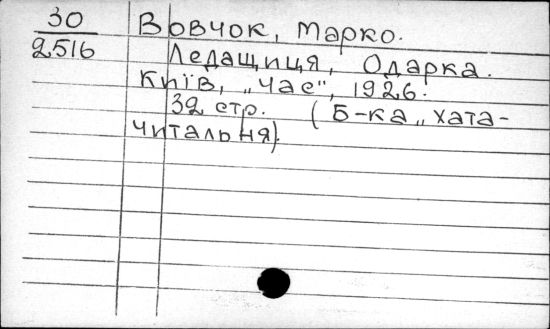 30
2516
Вовчок, Марко.
Ледащиця, Одарка.
Київ, „Час", 1926.
32 стр. (Б-ка „хата-
читальня).